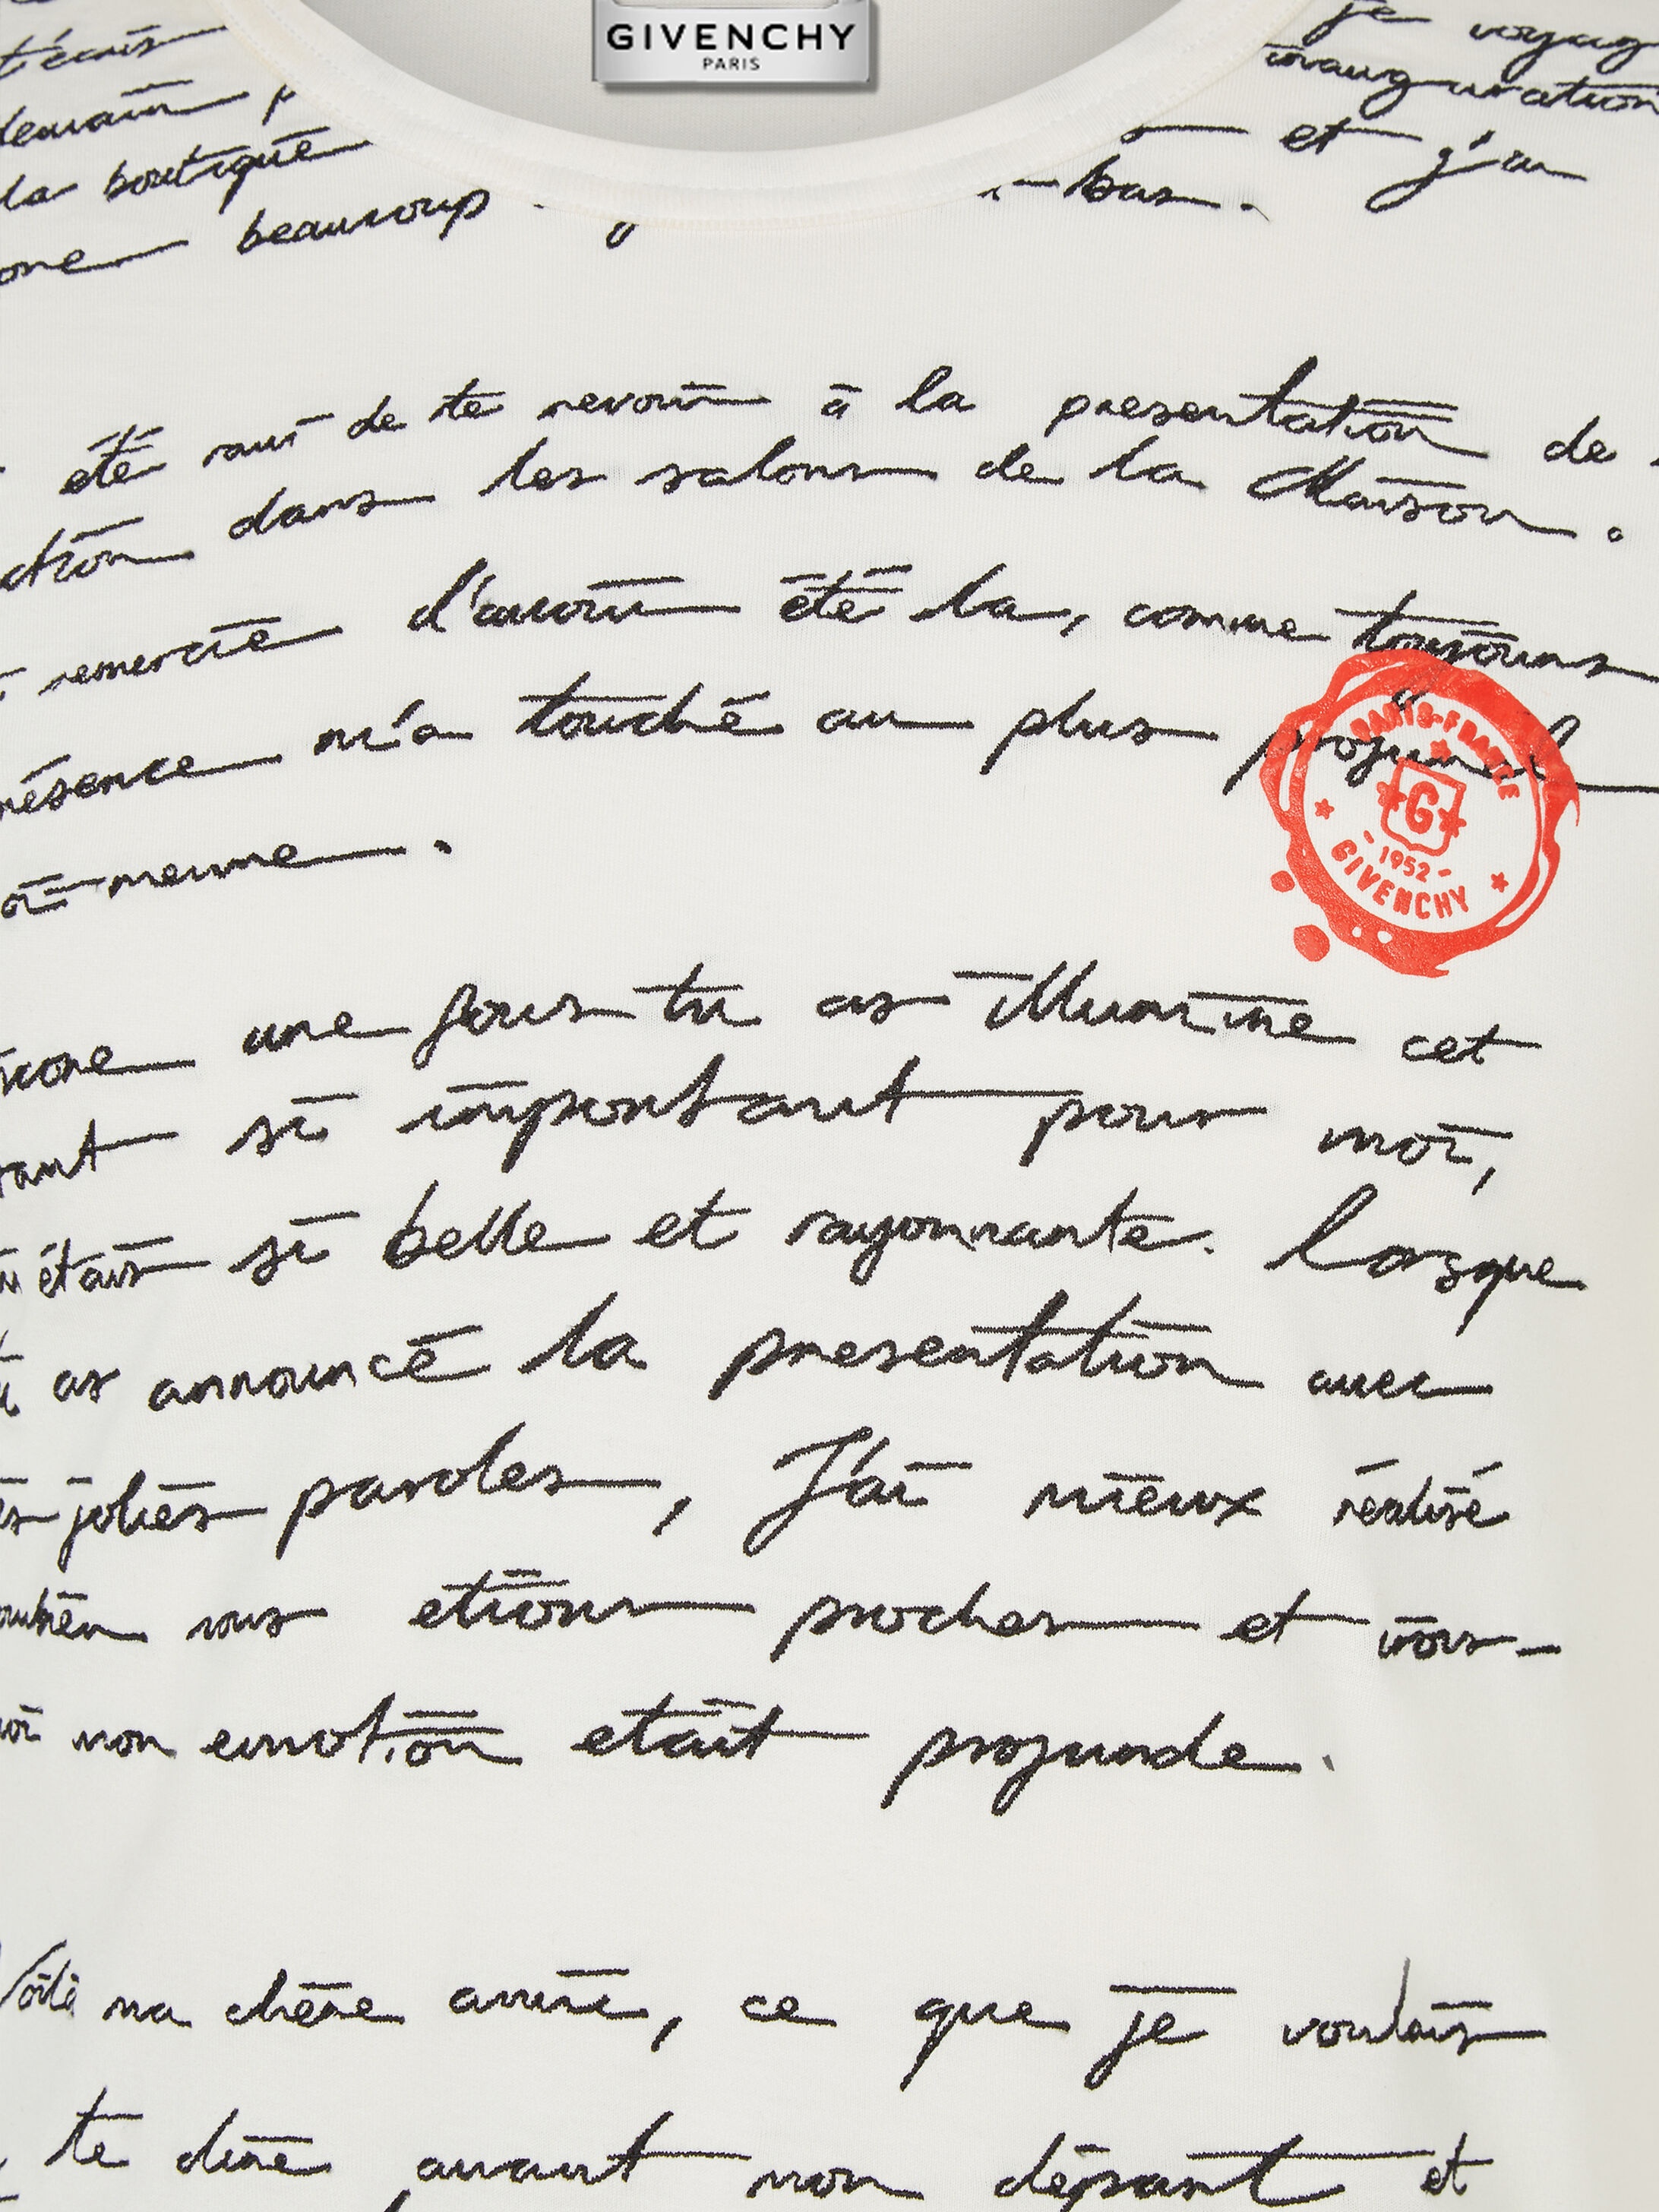 GIVENCHY
PARIS
t'écris je voyag
demain inauguration
la boutique et j'ai
beaucoup bas.
été ravi de te revoir à la presentation de
dans les salons de la Maison.
remercie d'avoir été la, comme toujours
m'a touché au plus profond
meme.
une fois tu as illumine cet
si important pour moi,
étais si belle et rayonnante. lorsque
as annoncé la presentation avec
jolies paroles, J'ai mieux réalisé
nous etions proches et vois-
mon emotion etait profonde.
Voilà ma chère amie, ce que je voulais
te dire avant mon départ et
PARIS-FRANCE
G
-1952-
GIVENCHY